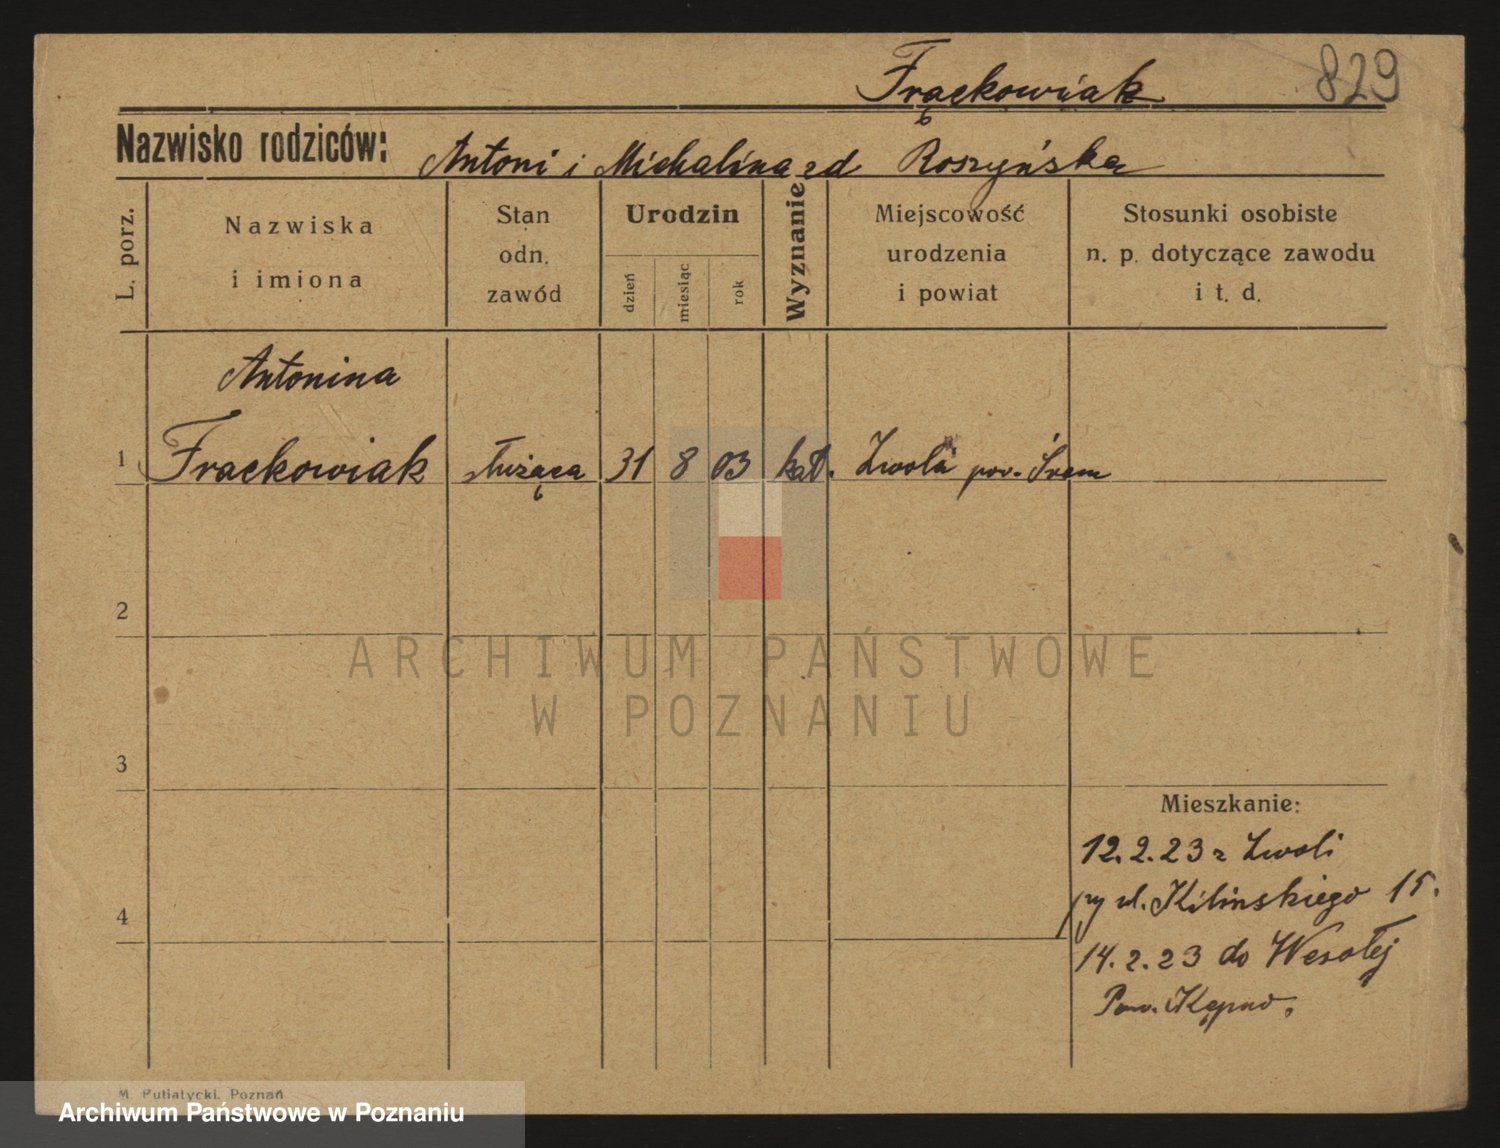 Frąckowiak 829
Nazwisko rodziców: Antoni i Michalina zd Roszyńska
L. porz.
Nazwiska
i imiona
Stan
odn.
zawód
Urodzin
dzień
miesiąc
rok
Wyznanie
Miejscowość
urodzenia
i powiat
Stosunki osobiste
n. p. dotyczące zawodu
i t. d.
Antonina
1 Frackowiak służąca 31 8 03 kat. Zwola pow. Śrem
2
ARCHIWUM PAŃSTWOWE
W POZNANIU
3
Mieszkanie:
12.2.23 z Zwoli
4
ul. Kilinskiego 15.
14.2.23 do Wesołej
Pow. Kępno.
M. Putiatycki, Poznań
Archiwum Państwowe w Poznaniu